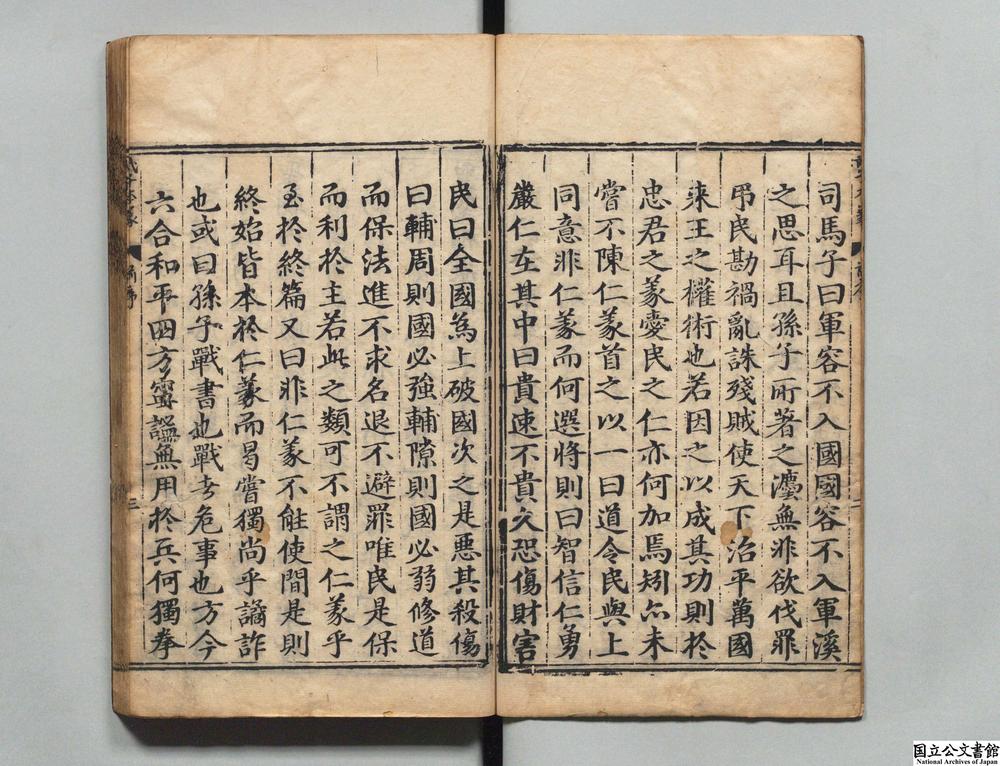 司馬子曰軍容不入國國容不入軍溪
之思耳且孫子所著之灋無非欲伐罪
弔民勘禍亂誅殘賊使天下治平萬國
来王之權術也若因之以成其功則於
忠君之義愛民之仁亦何加焉矧尒未
嘗不陳仁義首之以一曰道令民與上
同意非仁義而何選將則曰智信仁勇
嚴仁在其中曰貴速不貴久恐傷財害
民曰全國為上破國次之是惡其殺傷
曰輔周則國必強輔隙則國必弱修道
而保法進不求名退不避罪唯民是保
而利於主若此之類可不謂之仁義乎
至於終篇又曰非仁義不能使間是則
終始皆本於仁義而曷嘗獨尚乎譎詐
也或曰孫子戰書也戰者危事也方今
六合和平四方寧謐無用於兵何獨拳
三
国立公文書館
National Archives of Japan